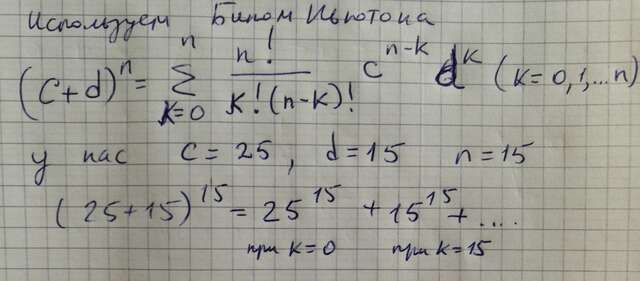 Используем Бином Ньютона
(c+d)^n = \sum_{k=0}^{n} \frac{n!}{k!(n-k)!} c^{n-k} d^k (k=0,1,...n)
у нас c=25, d=15 n=15
(25+15)^{15} = 25^{15} + 15^{15} + ....
при k=0 при k=15